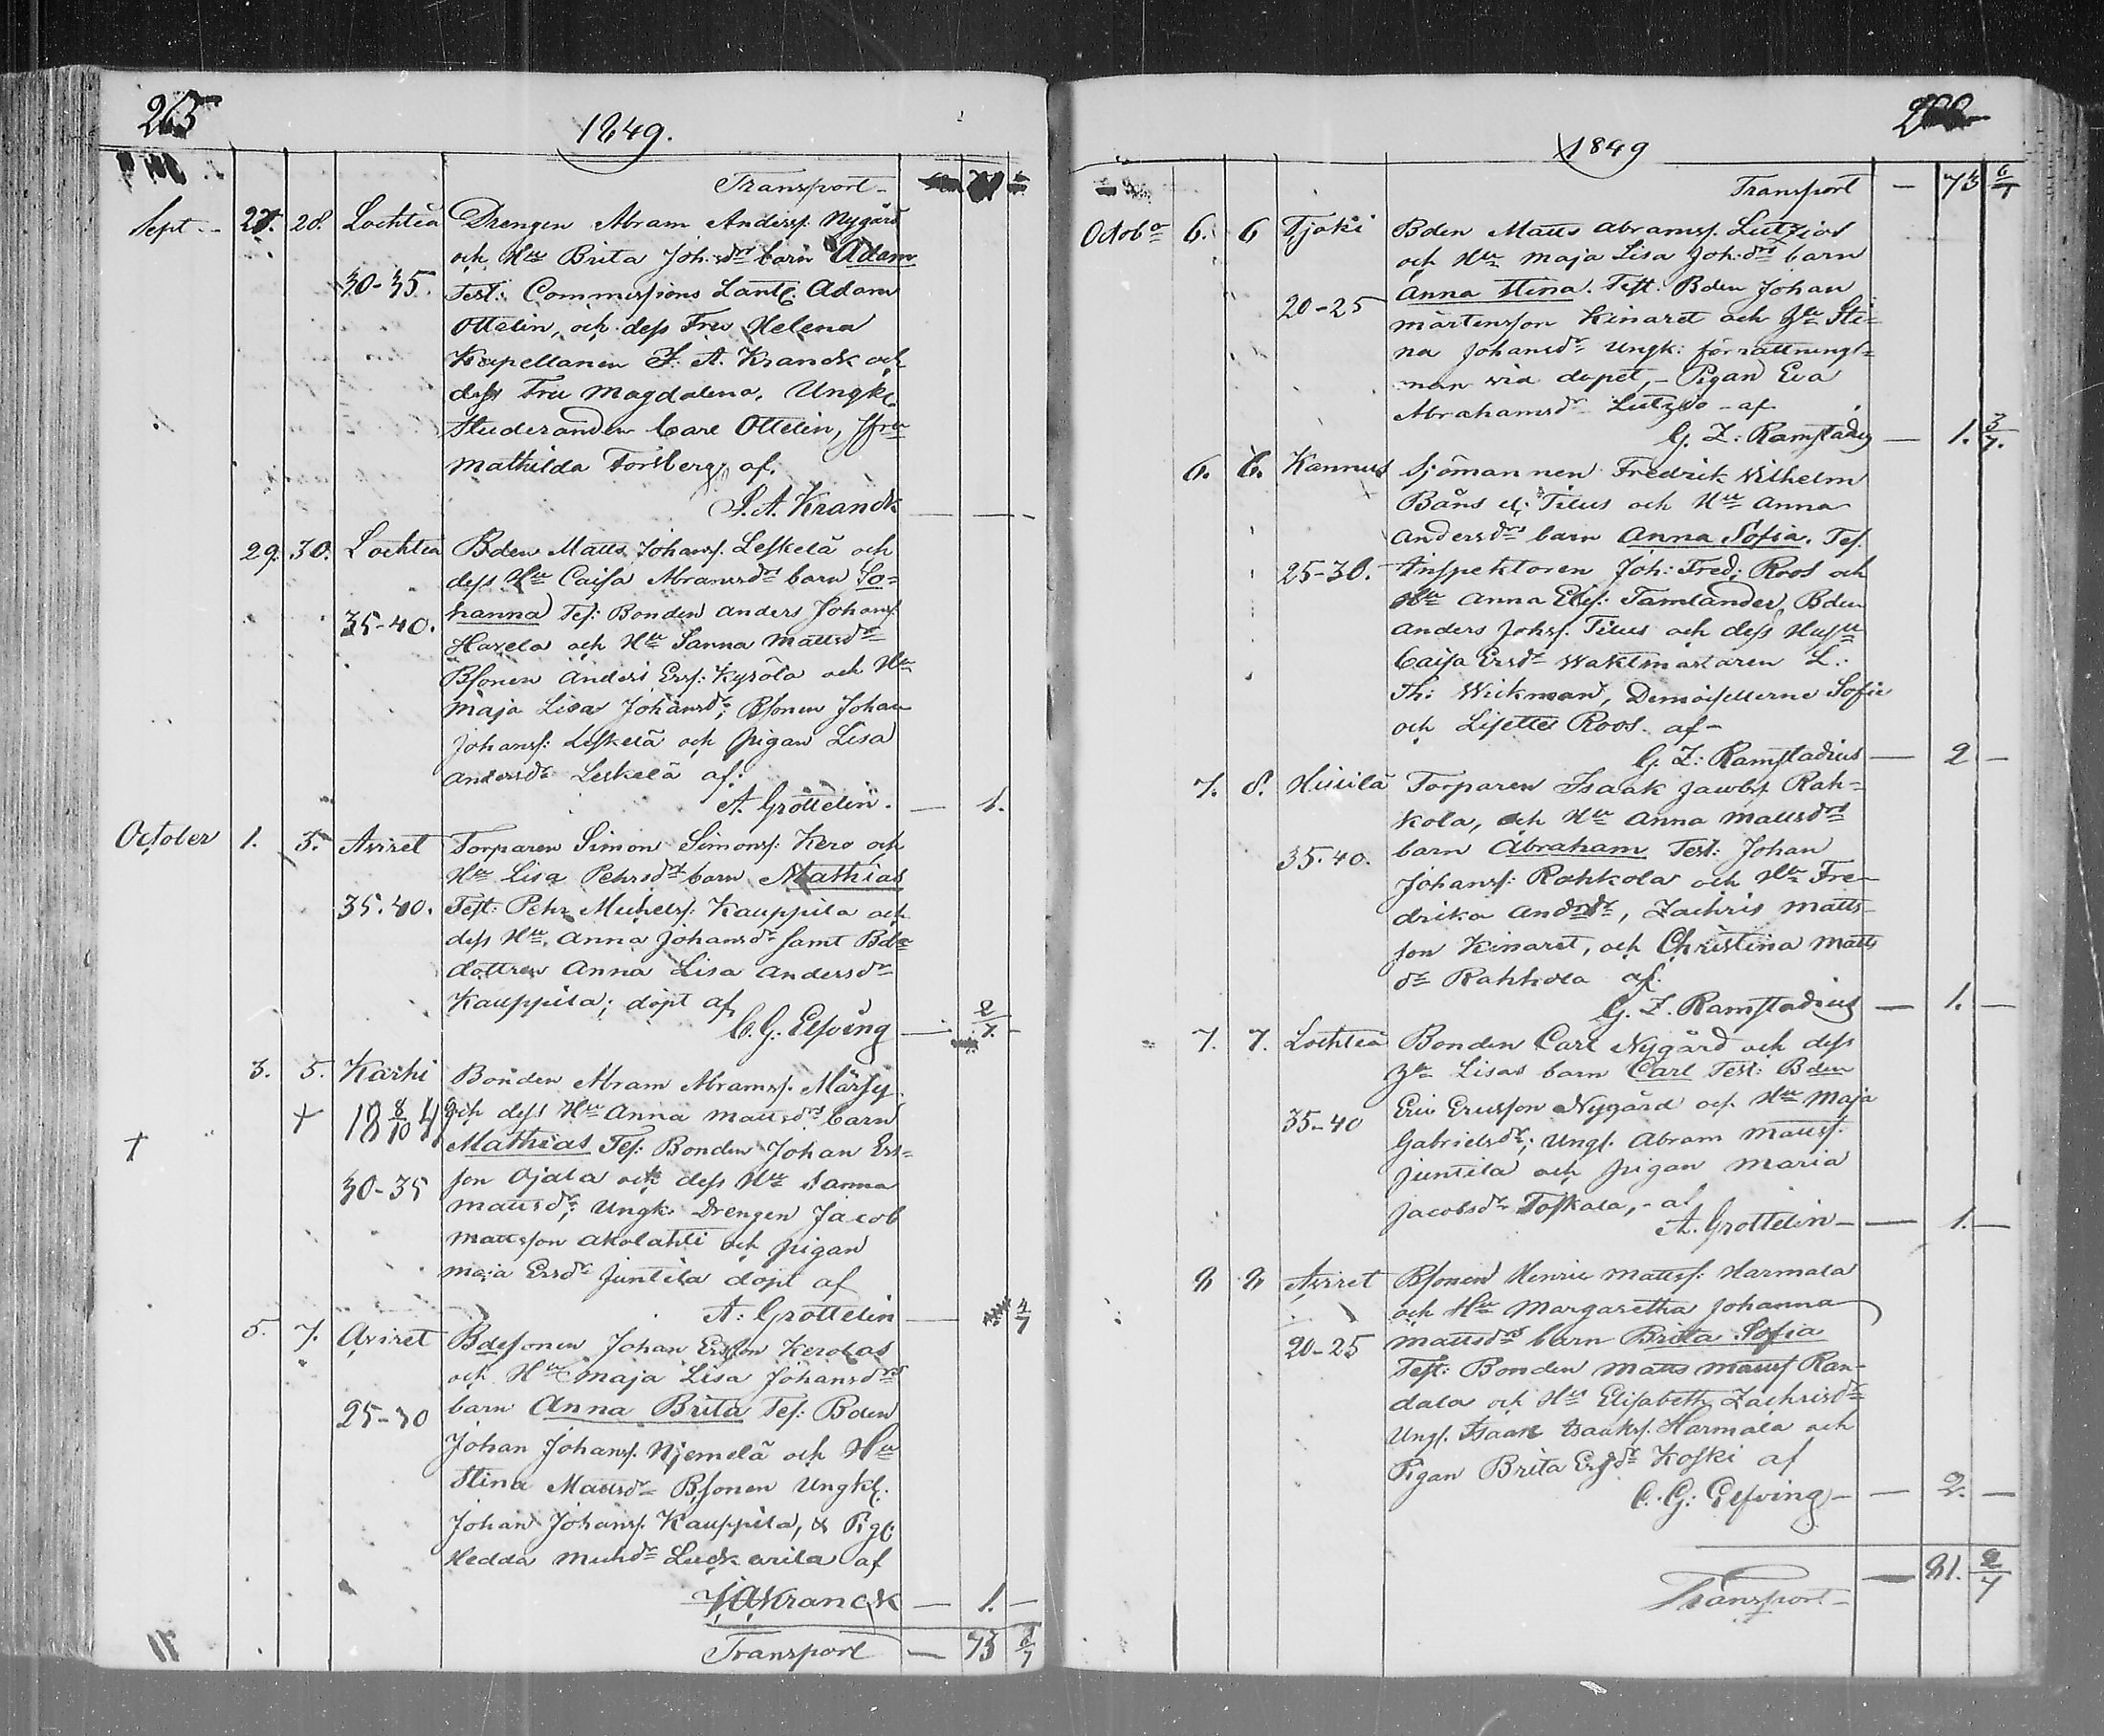 265
1849.
Transport
Sept. 27. 28. Lochteå Drengen Abram Anderss. Nygård
och Hu Brita Joh:sdrs barn Adam
30-35. Test: Commissions Lantf. Adam
Ottelin, och dess Fru Helena
Kapellanen J. A. Kranck och
dess Fru Magdalena, Ungk.
Studeranden Carl Ottelin, Jfru
Mathilda Forsberg, af.
J. A. Kranck
29. 30. Lochteå Bden Matts Johans. Leskelä och
dess Hu Caisa Abramsdrs barn Jo-
35-40. hanna Tes: Bonden Anders Johans.
Haxela och Hu Sanna Mattsdr
Bsonen Anders Erss: Kyrölä och Hu
Maja Lisa Johansdr; Bsonen Johan
Johanss: Leskelä och pigan Lisa
Andersdr Leskelä af:
A. Grottelin. — 1.
October 1. 5. Aviret Torparen Simon Simonss: Kero och
Hu Lisa Pehrsdrs barn Mathias
35.40. Test: Pehr Michelss: Kauppila och
dess Hu. Anna Johansdr samt Bde
dottren Anna Lisa Andersdr
Kauppila; döpt af
C. G. Elfving — 2/7.
3. 5. Karhi Bonden Abram Abramss. Märsy
+ 18 8/10 49 och dess Hu Anna Mattsdrs barn
+ Mathias Tes: Bonden Johan Ers-
30-35 son Ojala och dess Hu Sanna
Mattsdr; Ungk. Drengen Jacob
Mattsson Akolahti och pigan
Maja Ersdr Juntila döpt af
A: Grottelin — 4/7
5. 7. Aviret Bdesonen Johan Ersson Kerolas
och Hu Maja Lisa Johansdrs
25-30 barn Anna Brita Tes: Bden
Johan Johans. Njemelä och Hu
Stina Mattsdr Bsonen Ungkl.
Johan Johanss. Kauppila, & Pig:
Hedda Michdr Luckarila af
J A Kranck — 1. —
Transport — 73 6/7
1849
Transport — 73 6/7
Octobr 6. 6 Tjoki Bden Matts Abramss. Lutzios
och Hu Maja Lisa Joh:drs barn
20-25 Anna Stina. Test. Bden Johan
Mårtensson Kinaret och Hu Sti-
na Johansdr Ungk: förrättnings-
man vid dopet, - Pigan Eva
Abrahamsdr Lutzio - af
G. Z: Ramstadius — 1. 3/7.
6. 6. Kannus Sjömannen Fredrik Wilhelm
Båns el: Tilus och Hu Anna
Andersdrs barn Anna Sofia. Tes.
25-30. Inspektoren Joh: Fred: Roos och
Hu Anna Elis: Tamlander, Bden
Anders Johss. Tilus och dess Hustu
Caisa Ersdr Waktmästaren L:
Th: Wickman, Demoisellerne Sofie
och Lisette Roos. af -
G. Z: Ramstadius — 2 —
7. 8. Hiuilä Torparen Isaak Jacobs. Rah-
kola, och Hu Anna Mattsdrs
35.40. barn Abraham Test: Johan
Johanss: Rahkola och Hu Fre-
drika Andrsdr, Zachris Matts-
son Kinaret, och Christina Matts
dr Rahkola af.
G. Z. Ramstadius — 1. —
7. 7. Lochteå Bonden Carl Nygård och dess
Hu Lisas barn Carl Test: Bden
35-40 Eric Ericsson Nygård och Hu Maja
Gabrielsdr; Ungl. Abram Mattss.
Juntila och pigan Maria
Jacobsdr Toskala, - af
A. Grottelin — 1. —
8 8 Aviret Bsonen Henric Mattss: Harmala
och Hu Margaretha Johanna
20-25 Mattsdrs barn Brita Sofia
Test: Bonden Matts Mattss Ran-
dala och Hu Elisabeth Zachrisdr
Ungl. Isaac Isaakss. Harmala och
Pigan Brita Ersdr Koski af
C. G: Elfving — 2. —
Transport — 81. 2/7